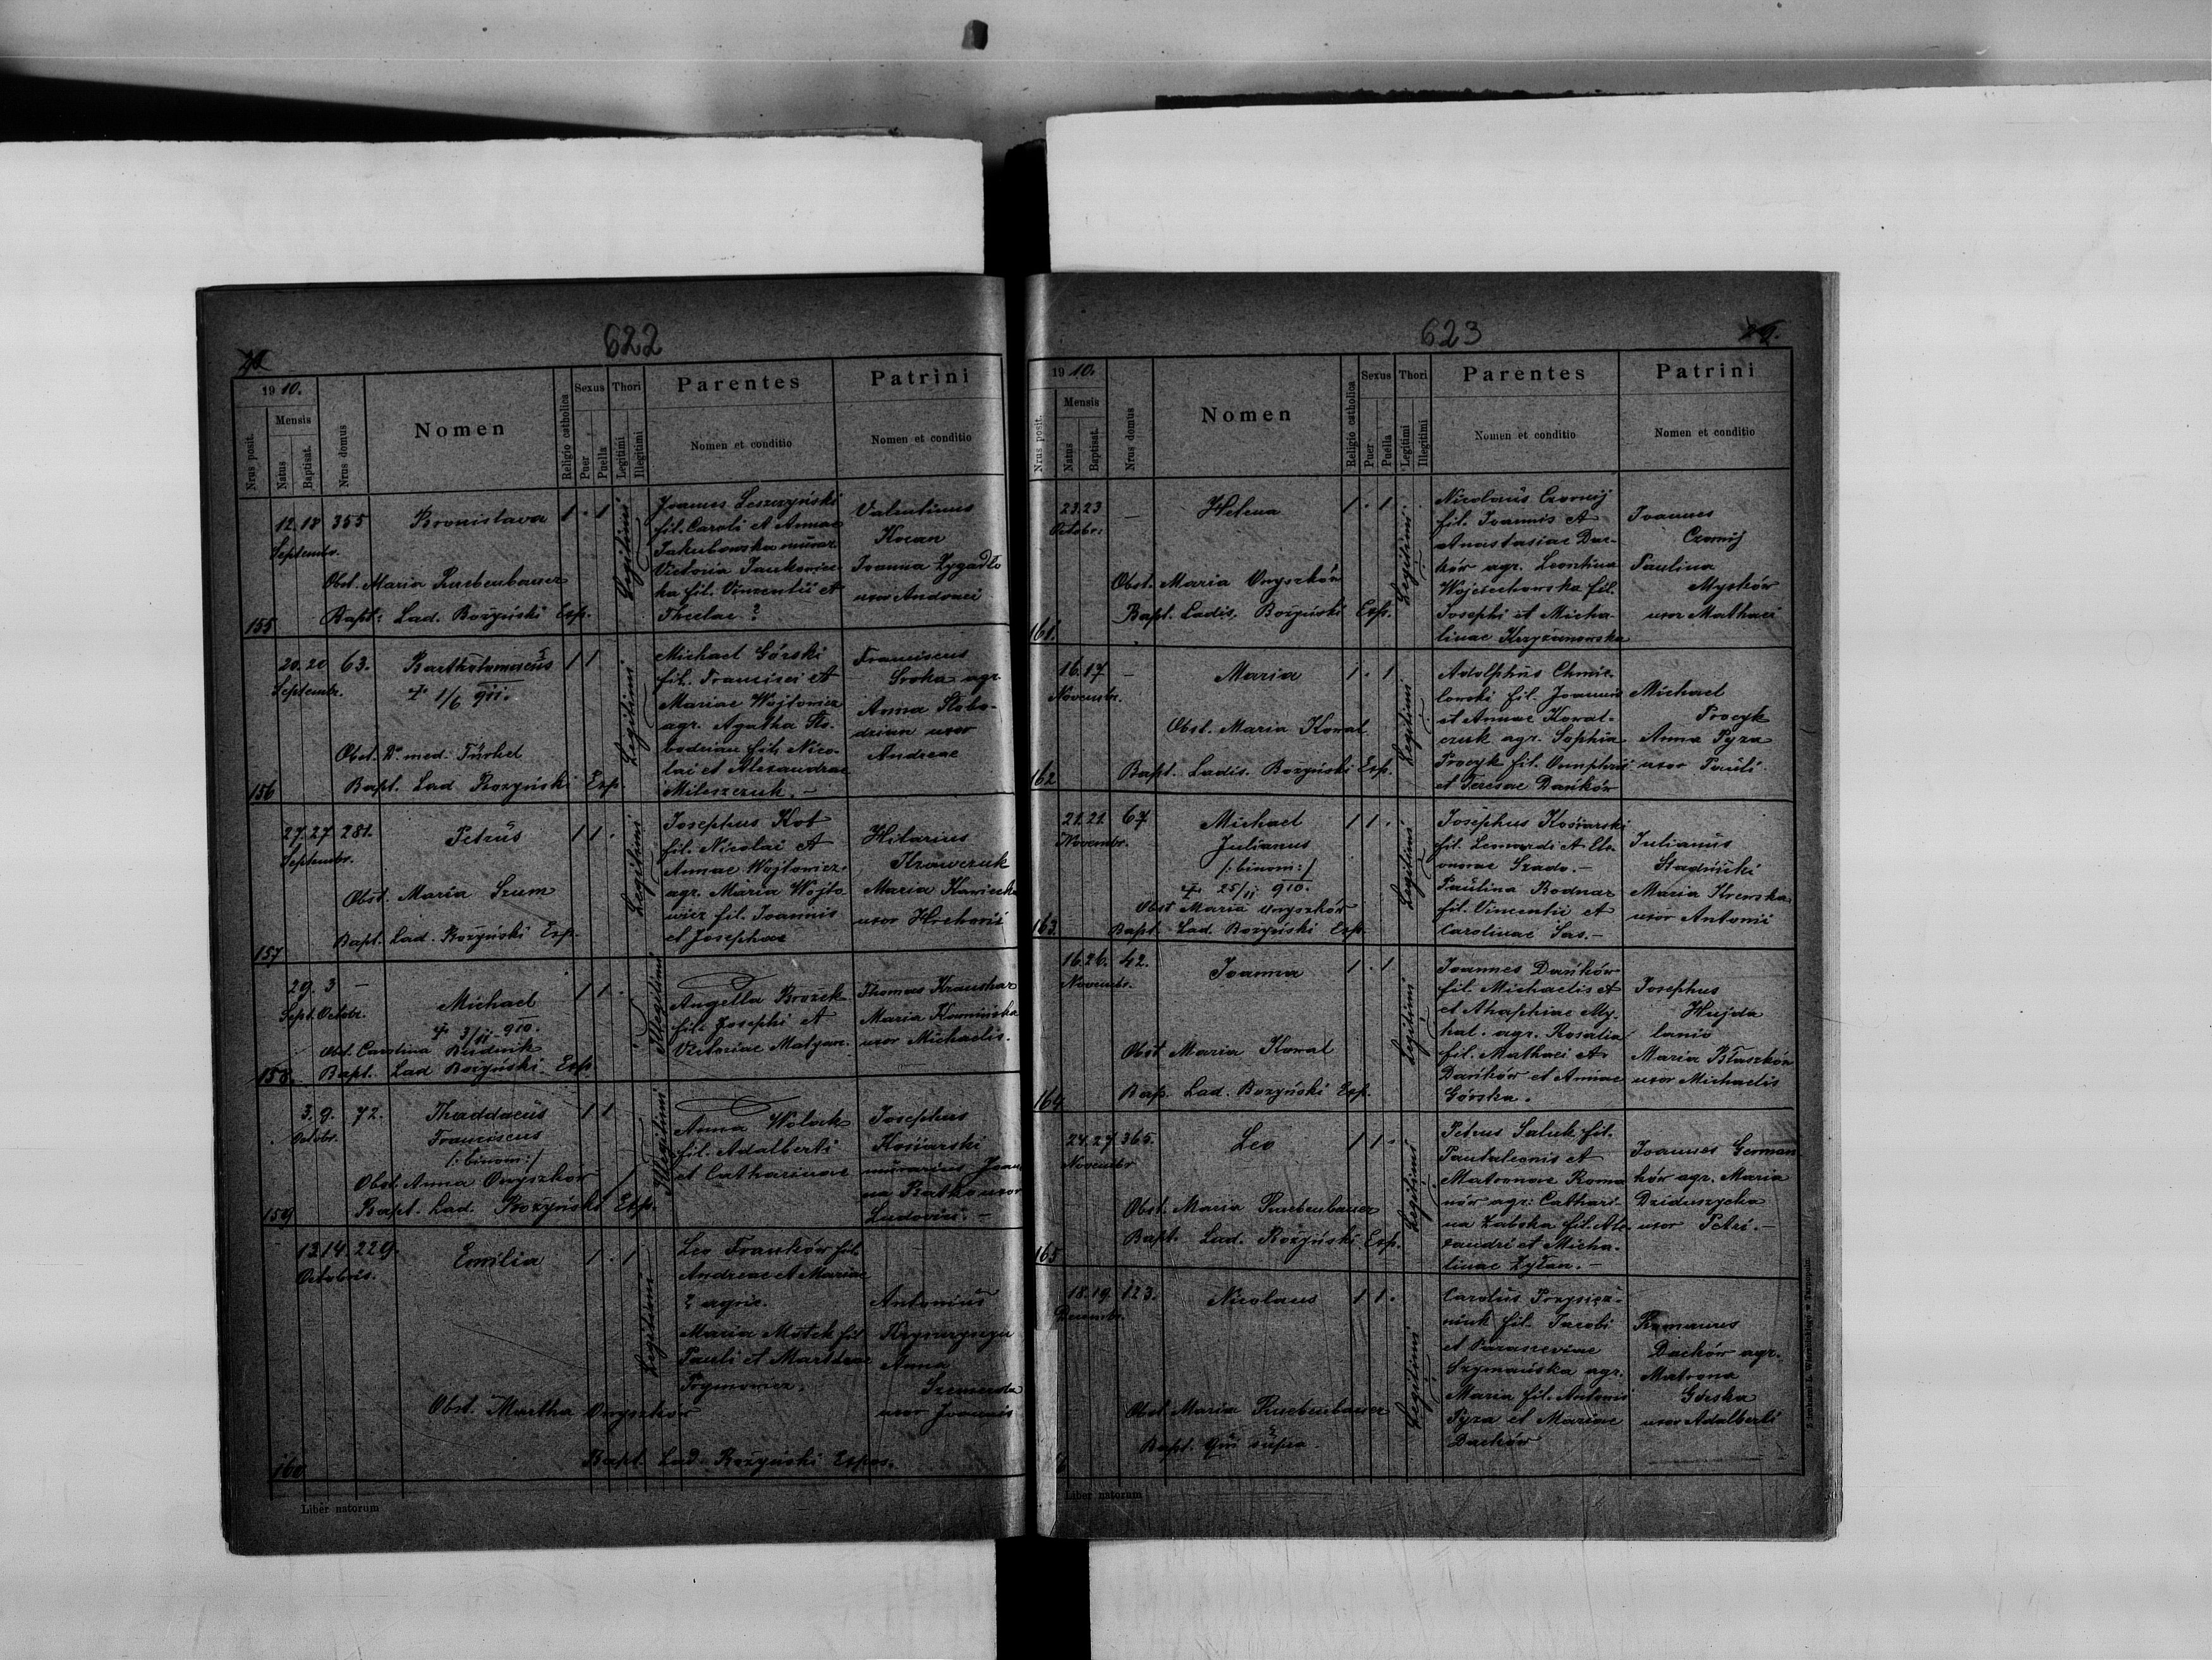 622
1910.
Nrus posit.
Mensis
Natus
Baptisat.
Nrus domus
Nomen
Religio catholica
Sexus
Puer
Puella
Thori
Legitimi
Illegitimi
Parentes
Nomen et conditio
Patrini
Nomen et conditio
155
12. 18
Septembr.
355
Bronislava
1 . 1
Obst. Maria Ruebenbauer
Bapt: Lad. Bożyński Exp.
Legitimi
Joannes Leszczyński
fil. Caroli et Annae
Jakubowska murar.
Victoria Jankowiec-
ka fil. Vincentii et
Theclae ?
Valentinus
Kocan
Joanna Zygadło
uxor Andreei
156
20. 20
Septembr.
63.
Bartholomaeus
1/6 911.
1 1
Obst. Dr. med. Türkel
Bapt. Lad Bożyński Exp
Legitimi
Michael Górski
fil. Francisci et
Mariae Wojtowicz
agr. Agatha Sło-
bodzian fil. Nico-
lai et Alexandrae
Mileszczuk. –
Franciscus
Sroka agr.
Anna Słobo-
dzian uxor
Andreae
157
27. 27
Septembr.
281.
Petrus
1 1 .
Obst. Maria Szum
Bapt. Lad. Bożyński Exp.
Legitimi
Josephus Kot
fil. Nicolai et
Annae Wojtowicz
agr. Maria Wojto
wicz fil. Joannis
et Josephae
Hilarius
Krawczuk
Maria Kawiecka
uxor Hrehorii
158.
29. 3
Sept. Octobr.
–
Michael
3/11 910.
1 1 .
Obst. Carolina Budnik
Bapt. Lad Bożyński Exp.
Illegitimi
Angella Brożek
fil. Josephi et
Victoriae Matyas.
Thomas Kraushar
Maria Kamińska
uxor Michaelis.
159
3. 9.
Octobr.
72.
Thaddaeus
Franciscus
/: binom :/
1 1
Obst. Anna Onyszków
Bapt. Lad. Bożyński Exp.
Illegitimi
Anna Wołock
fil. Adalberti
et Catharinae
Josephus
Kosiarski
murarius Joan
na Ratko uxor
Ludovici. –
160
13 14.
Octobris.
229.
Emilia
1 . 1
Obst. Martha Onyszków
Bapt. Lad. Bożyński Expos.
Legitimi
Leo Franków fil.
Andreae et Mariae
? agric.
Maria Motek fil
Pauli et Marthae
Antonius
Krywczyszyn
Anna
uxor Joannis
Liber natorum
623
1910.
Nrus posit.
Mensis
Natus
Baptisat.
Nrus domus
Nomen
Religio catholica
Sexus
Puer
Puella
Thori
Legitimi
Illegitimi
Parentes
Nomen et conditio
Patrini
Nomen et conditio
161.
23. 23
Octobr:
–
Helena
1 . 1
Obst. Maria Onyszków
Bapt. Ladis. Bożyński Exp.
Legitimi
Nicolaus Czornij
fil. Joannis et
Anastasiae Dac-
ków agr. Leontina
Wojciechowska fil.
Josephi et Micha-
linae Krzyżanowska
Joannes
Czornij
Paulina
Myśków
uxor Mathaei
162
16. 17
Novembr.
–
Maria
1 . 1
Obst. Maria Kowal
Bapt. Ladis. Bożyński Exp.
Legitimi
Adolphus Chmie-
lowski fil. Joannis
et Annae Kowal-
czuk agr. Sophia
Procyk fil. Onuphrii
et Teresae Dańków
Michael
Procyk
Anna Pyza
uxor Pauli
163.
21. 21.
Novembr.
67
Michael
Julianus
/: binom :/
25/11 910.
1 1 .
Obst Maria Onyszków
Bapt. Lad. Bożyński Exp.
Legitimi
Josephus Kosiarski
fil. Leonardi et Ele-
onorae Szado. –
Paulina Bodnar
fil. Vincentii et
Carolinae Sas. –
Julianus
Stadnicki
Maria Krenska
uxor Antonii
164
16. 26.
Novembr.
42.
Joanna
1 . 1
Obst Maria Kowal
Bap. Lad. Bożyński Exp.
Legitimi
Joannes Dańków
fil. Michaelis et
et Ahaphiae My-
hal. agr. Rosalia
fil. Mathaei et
Dańków et Annae
Górska.
Josephus
Hujda
lanio
Maria Błaszków
uxor Michaelis
165
24. 27
Novembr
365.
Leo
1 1 .
Obst. Maria Ruebenbauer
Bapt. Lad. Bożyński Exp.
Legitimi
Petrus Saluk fil.
Pantaleonis et
Matronae Roma
nów agr: Cathari-
na Zaboka fil. Ale-
xandri et Micha-
linae Zytan. –
Joannes German
ków agr. Maria
Dziduszycka
uxor Petri. –
18. 19.
Decembr.
123.
Nicolaus
1 1 .
Obst. Maria Ruebenbauer
Bapt. Qui supra.
Legitimi
Carolus Przysięż-
niuk fil. Jacobi
et Parasceviae
Szymańska agr.
Maria fil. Antonii
Pyza et Mariae
Dacków
Romanus
Dacków agr.
Matrona
Górska
uxor Adalberti
Liber natorum